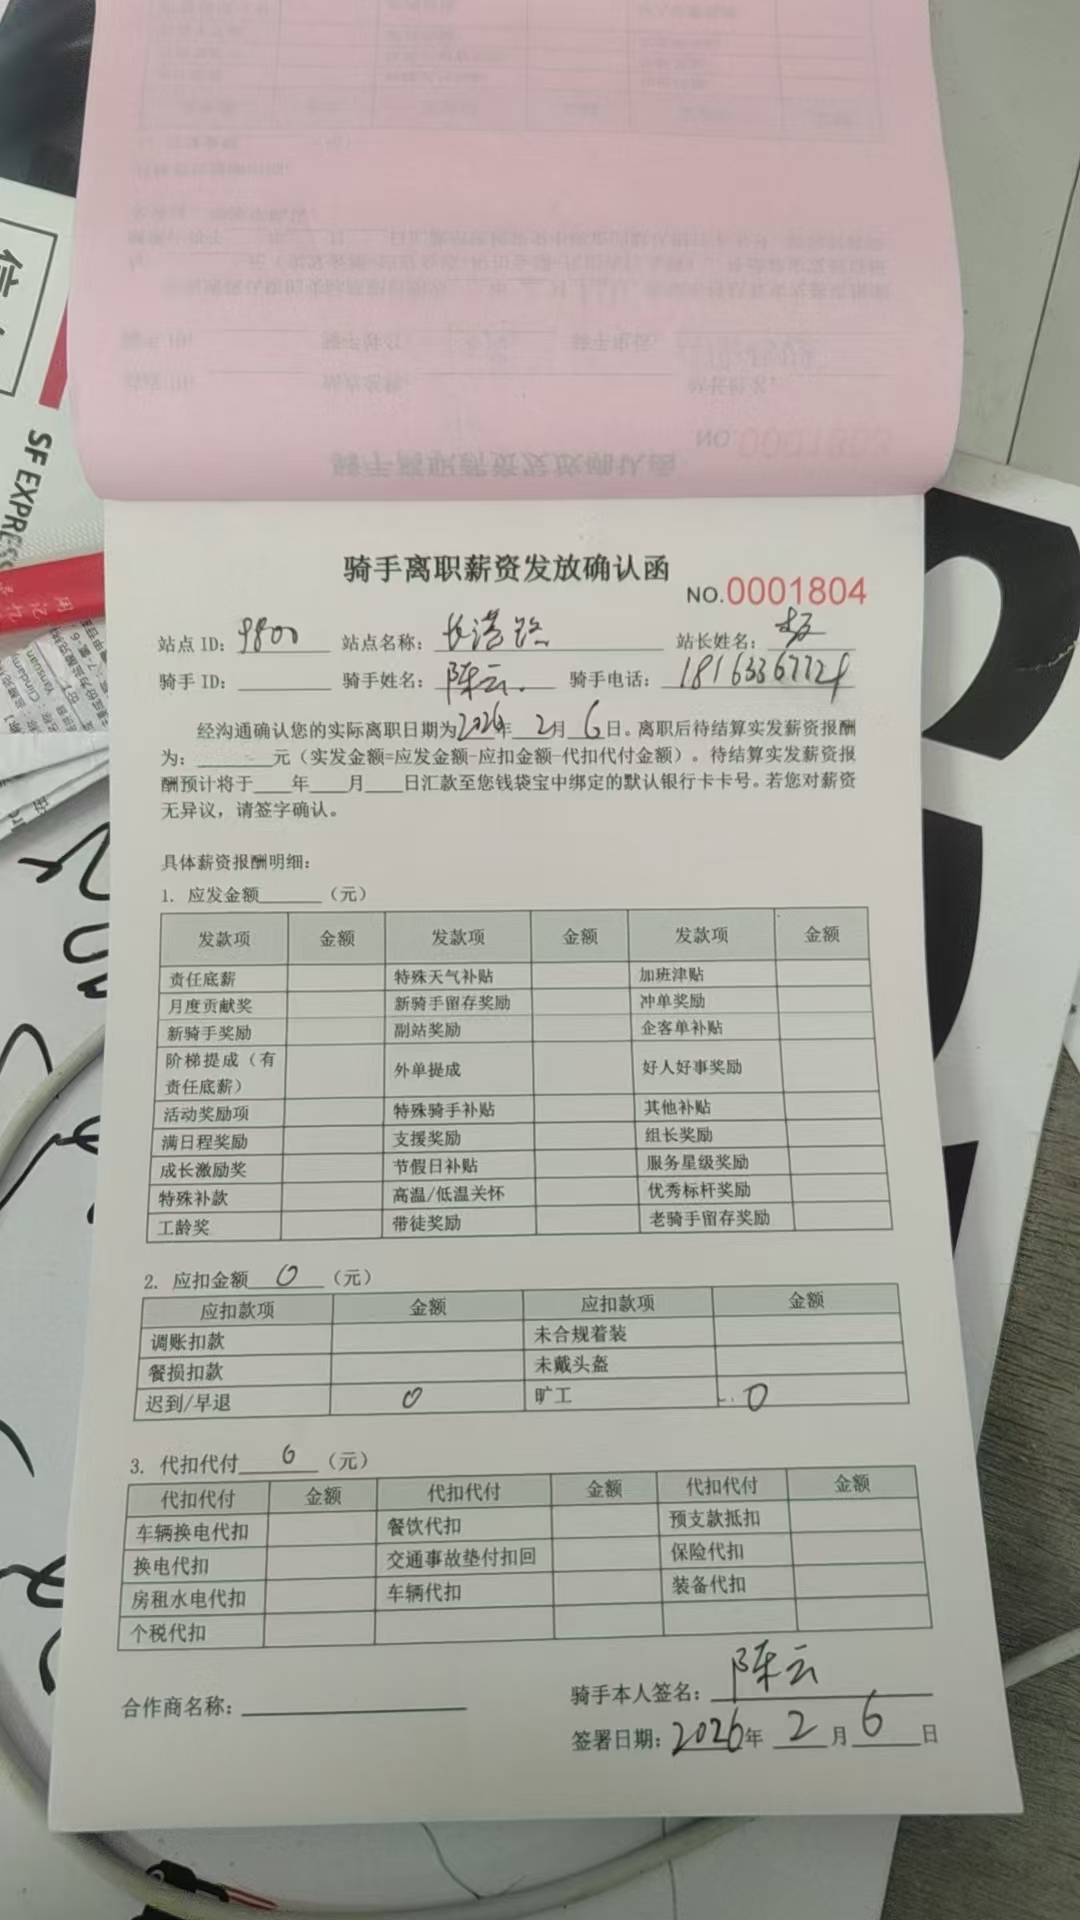 SF EXPRESS
骑手离职薪资发放确认函
NO.0001804
站点 ID: 9800 站点名称: 长港路 站长姓名:
骑手 ID: 骑手姓名: 陈云. 骑手电话:
经沟通确认您的实际离职日期为2026年2月6日。离职后待结算实发薪资报酬
为: 元（实发金额=应发金额-应扣金额-代扣代付金额）。待结算实发薪资报
酬预计将于 年 月 日汇款至您钱袋宝中绑定的默认银行卡卡号。若您对薪资
无异议，请签字确认。
具体薪资报酬明细：
1. 应发金额 （元）
发款项 金额 发款项 金额 发款项 金额
责任底薪 特殊天气补贴 加班津贴
月度贡献奖 新骑手留存奖励 冲单奖励
新骑手奖励 副站奖励 企客单补贴
阶梯提成（有责任底薪） 外单提成 好人好事奖励
活动奖励项 特殊骑手补贴 其他补贴
满日程奖励 支援奖励 组长奖励
成长激励奖 节假日补贴 服务星级奖励
特殊补款 高温/低温关怀 优秀标杆奖励
工龄奖 带徒奖励 老骑手留存奖励
2. 应扣金额 0 （元）
应扣款项 金额 应扣款项 金额
调账扣款 未合规着装
餐损扣款 未戴头盔
迟到/早退 0 旷工 0
3. 代扣代付 0 （元）
代扣代付 金额 代扣代付 金额 代扣代付 金额
车辆换电代扣 餐饮代扣 预支款抵扣
换电代扣 交通事故垫付扣回 保险代扣
房租水电代扣 车辆代扣 装备代扣
个税代扣
合作商名称: 骑手本人签名: 陈云
签署日期: 2026年 2月 6日